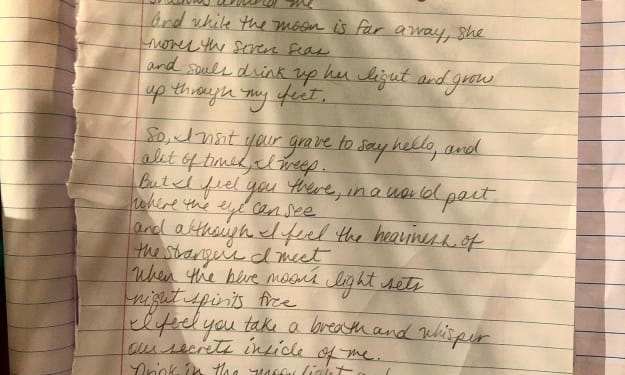 shadows around me
and while the moon is far away, she
moves the seven seas
and souls drink up her light and grow
up through my feet.
So, I visit your grave to say hello, and
alot of times, I weep.
But I feel you there, in a world past
where the eye can see
and although I feel the heaviness of
the strangers I meet
when the blue moon's light sets
night spirits free
I feel you take a breath and whisper
our secrets inside of me.
Drink in the moon light and